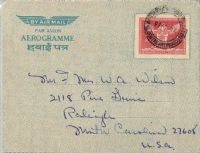 BY AIR MAIL
PAR AVION
AEROGRAMME
हवाई पत्र
Mr. & Mrs. W. A. Wilson
2118 Pine Drive
Raleigh
North Carolina 27608
U.S.A.